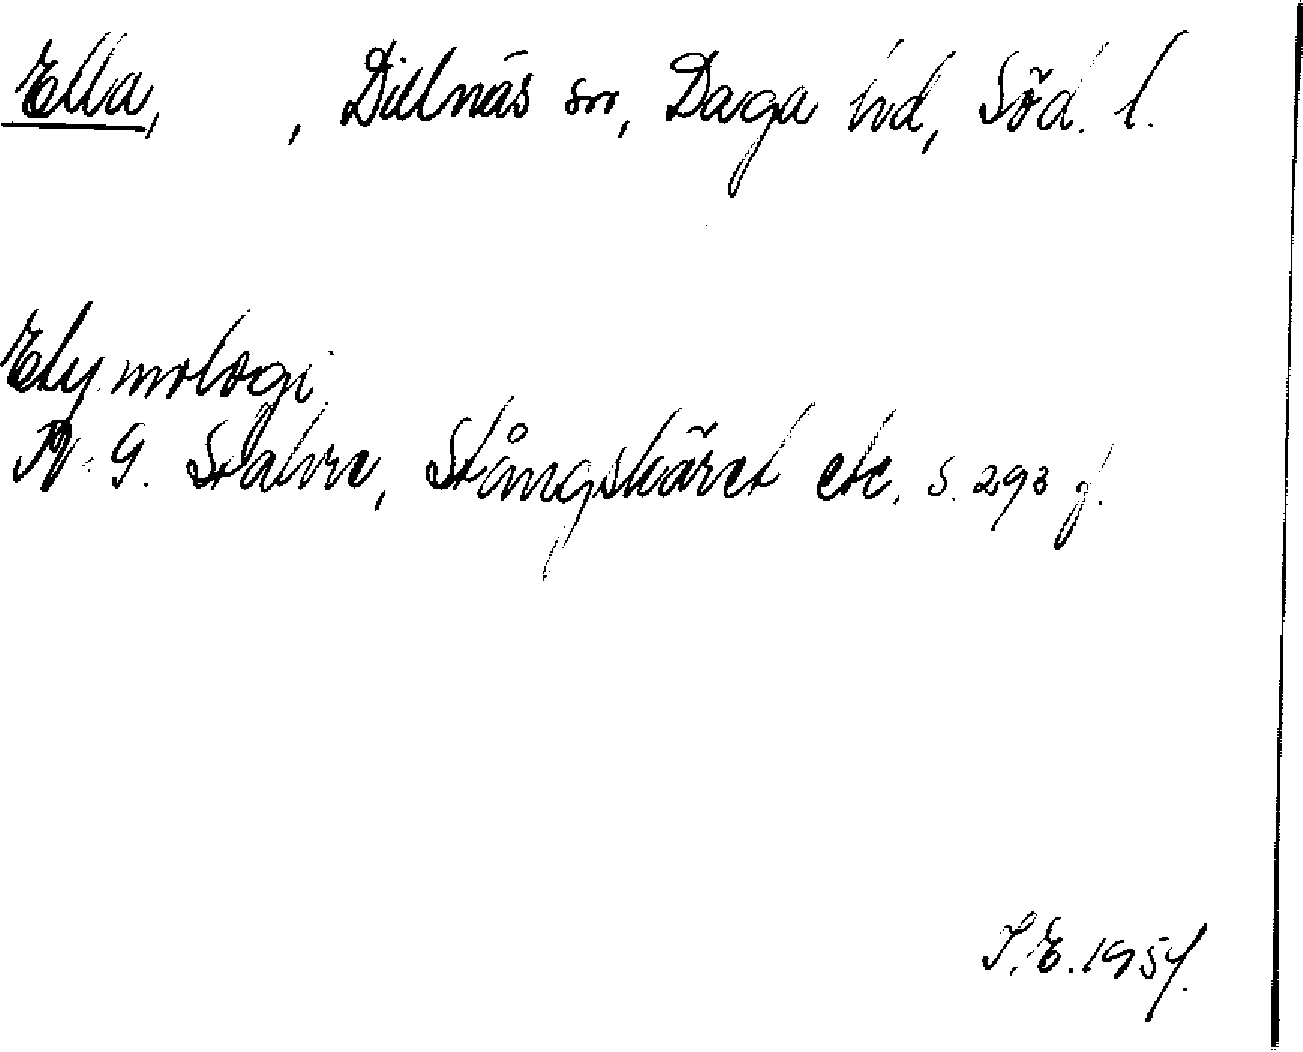 Ella, , Dillnäs sn, Daga hd, Söd. l.
Etymologi.
N. G. Stahre, Stångskäret etc. s. 293 f.
I. E. 1957.